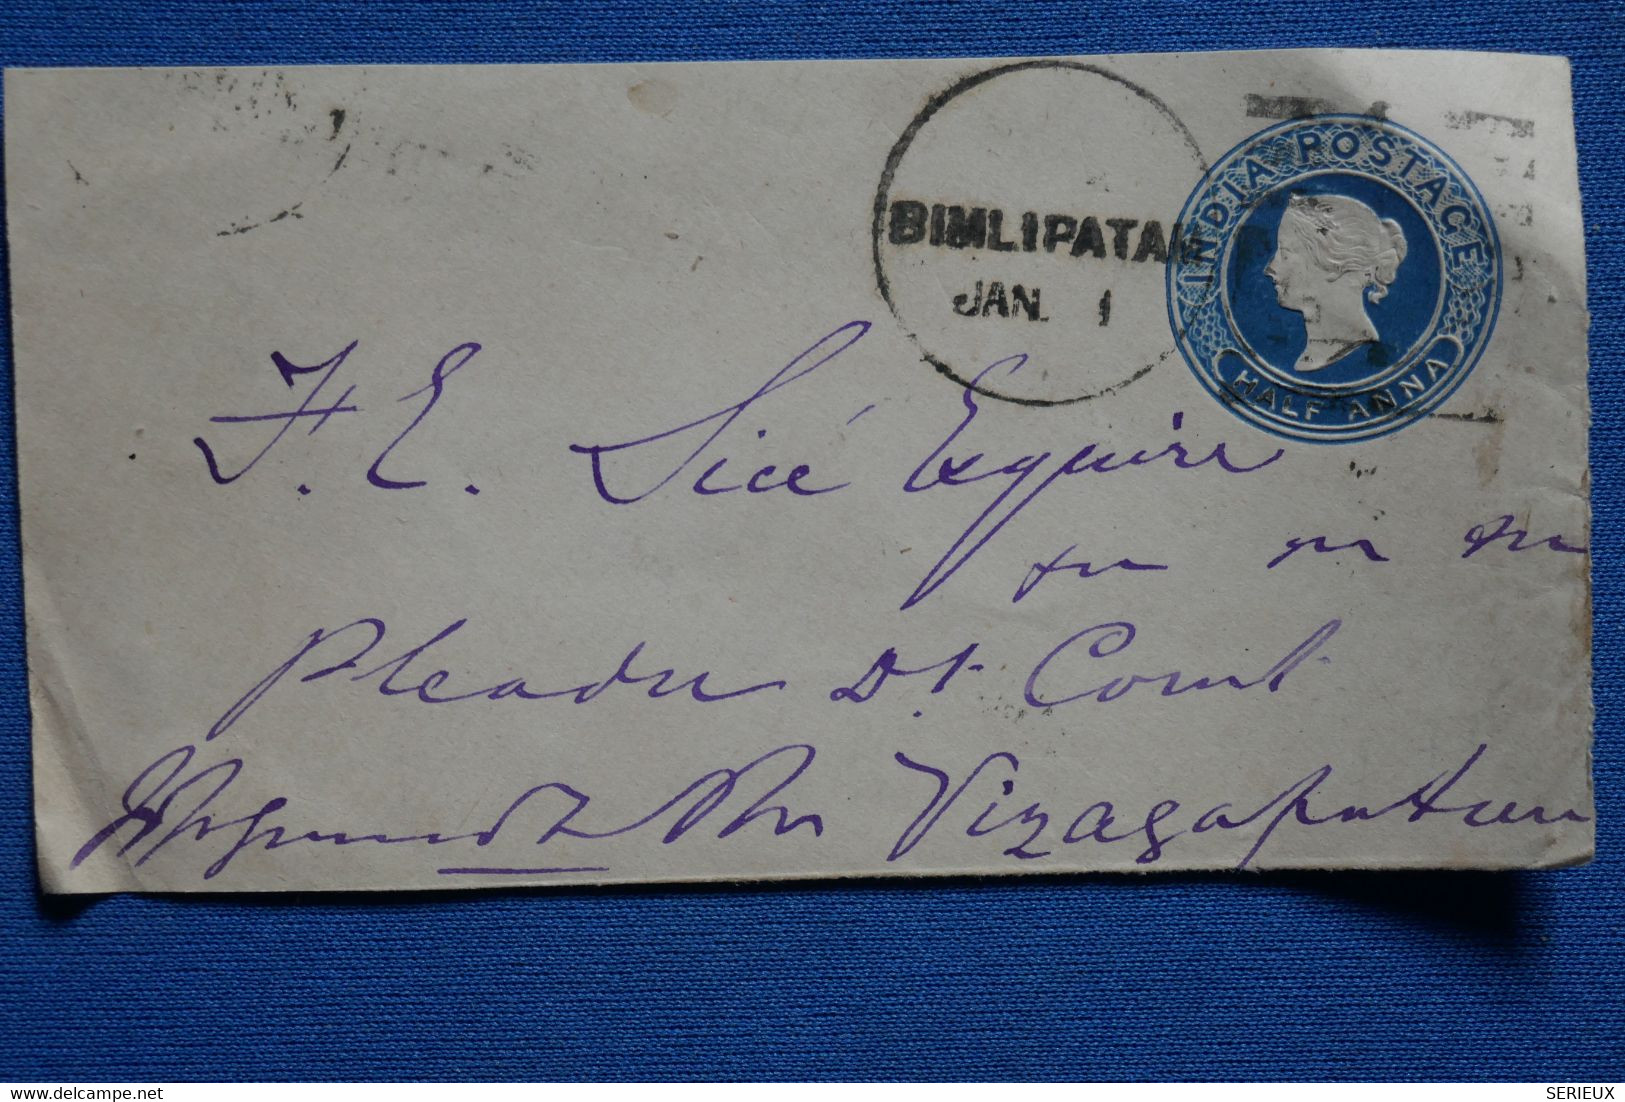 INDIA POSTAGE
HALF ANNA
BIMLIPATAM
JAN. 1
F. E. Sicé Esquire
Pleader Dt. Court
Vizagapatam
SERIEUX